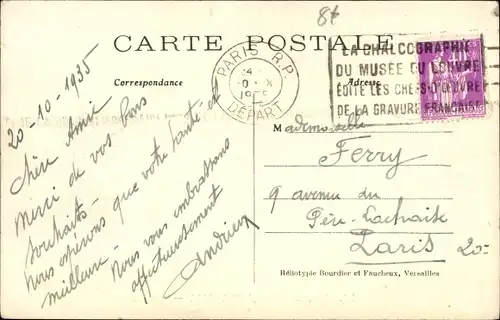 8t
CARTE POSTALE
Correspondance
Adresse
PARIS R.P.
DÉPART
LA CHALCOGRAPHIE
DU MUSÉE DU LOUVRE
EDITE LES CHEFS-D'OEUVRE
DE LA GRAVURE FRANÇAISE
20-10-1935
Chère Amie
Merci de vos bons
souhaits-
Nous espérons que votre santé est
meilleure-
Nous vous embrassons
affectueusement
Andrieux
Mademoiselle
Ferry
9 avenue du
Père-Lachaise
Paris 20-
Héliotypie Bourdier et Faucheux, Versailles